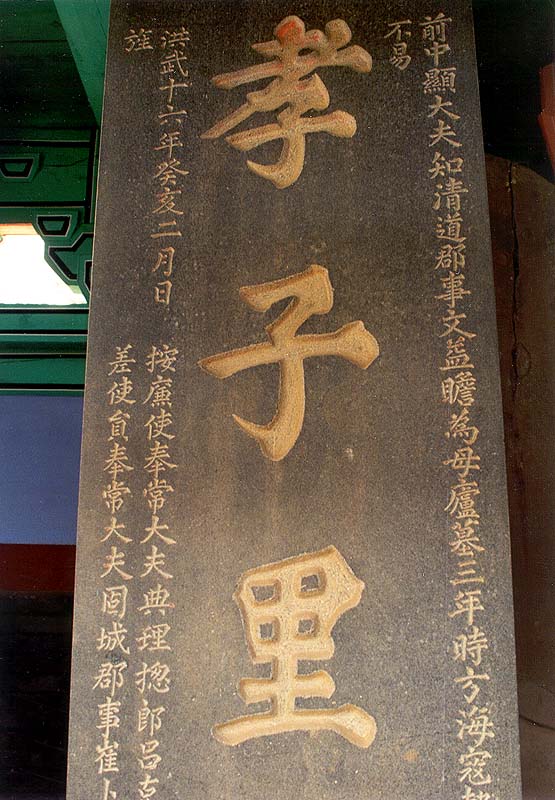 前中顯大夫知清道郡事文益瞻為母廬墓三年時方海寇
不易
孝子里
旌
洪武十六年癸亥二月日
按廉使奉常大夫典理揔郎呂克
差使員奉常大夫固城郡事崔卜